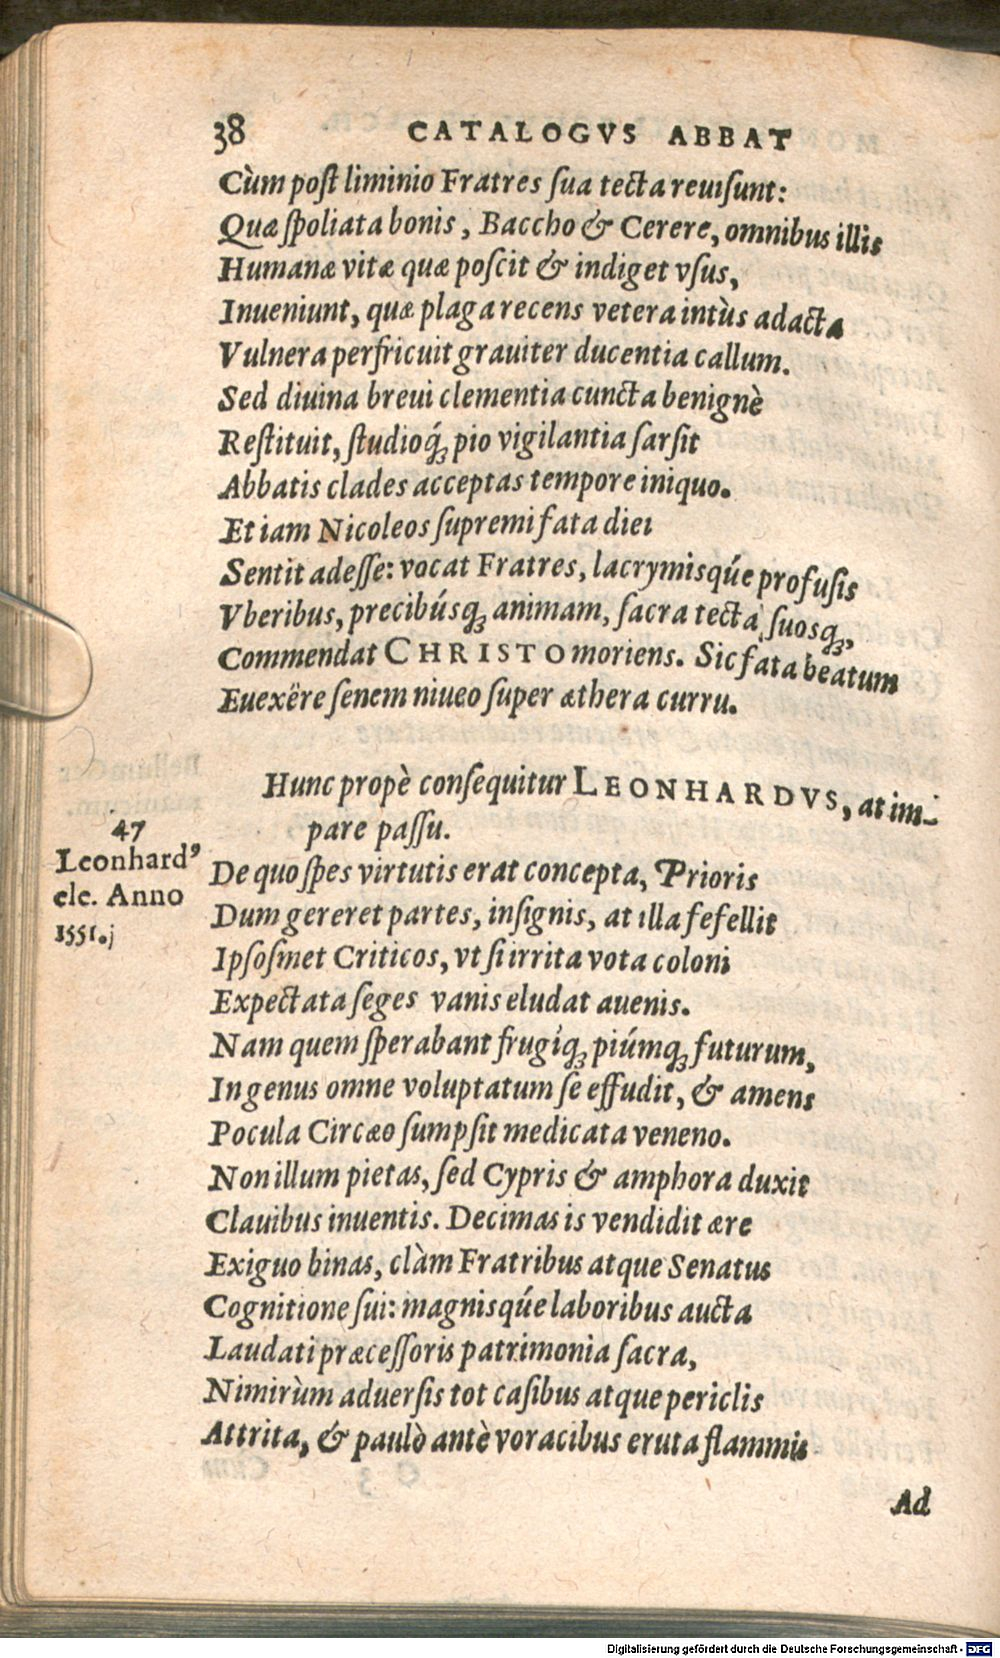 38 CATALOGVS ABBAT
Cùm post liminio Fratres sua tecta reuisunt:
Quæ spoliata bonis, Baccho & Cerere, omnibus illis
Humanæ vitæ quæ poscit & indiget vsus,
Inueniunt, quæ plaga recens vetera intùs adacta
Vulnera perfricuit grauiter ducentia callum.
Sed diuina breui clementia cuncta benignè
Restituit, studioq́; pio vigilantia sarsit
Abbatis clades acceptas tempore iniquo.
Et iam Nicoleos supremi fata diei
Sentit adesse: vocat Fratres, lacrymisqúe profusis
Vberibus, precibúsq; animam, sacra tecta suosq;,
Commendat CHRISTO moriens. Sic fata beatum
Euexëre senem niueo super æthera curru.
Hunc propè consequitur LEONHARDVS, at im-
pare passu.
47
Leonhard⁹
ele. Anno
1551.j
De quo spes virtutis erat concepta, Prioris
Dum gereret partes, insignis, at illa fefellit
Ipsosmet Criticos, vt si irrita vota coloni
Expectata seges vanis eludat auenis.
Nam quem sperabant frugíq; piúmq; futurum,
In genus omne voluptatum se effudit, & amens
Pocula Circæo sumpsit medicata veneno.
Non illum pietas, sed Cypris & amphora duxit
Clauibus inuentis. Decimas is vendidit ære
Exiguo binas, clàm Fratribus atque Senatus
Cognitione sui: magnisqúe laboribus aucta
Laudati præcessoris patrimonia sacra,
Nimirùm aduersis tot casibus atque periclis
Attrita, & paulò antè voracibus eruta flammis
Ad
Digitalisierung gefördert durch die Deutsche Forschungsgemeinschaft - DFG